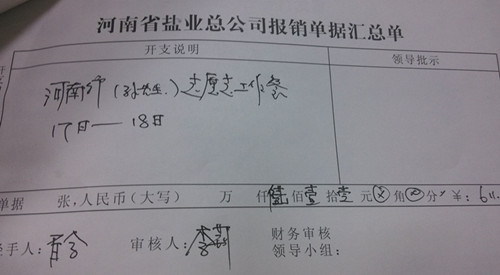 河南省盐业总公司报销单据汇总单
开支说明 领导批示
河南行 (孙先生.) 志愿者工作餐
17日——18日
单据 张,人民币(大写) 万 仟陆佰壹拾壹元⊗角⊗分 ¥: 611.
经手人: 审核人:李 财务审核
领导小组: